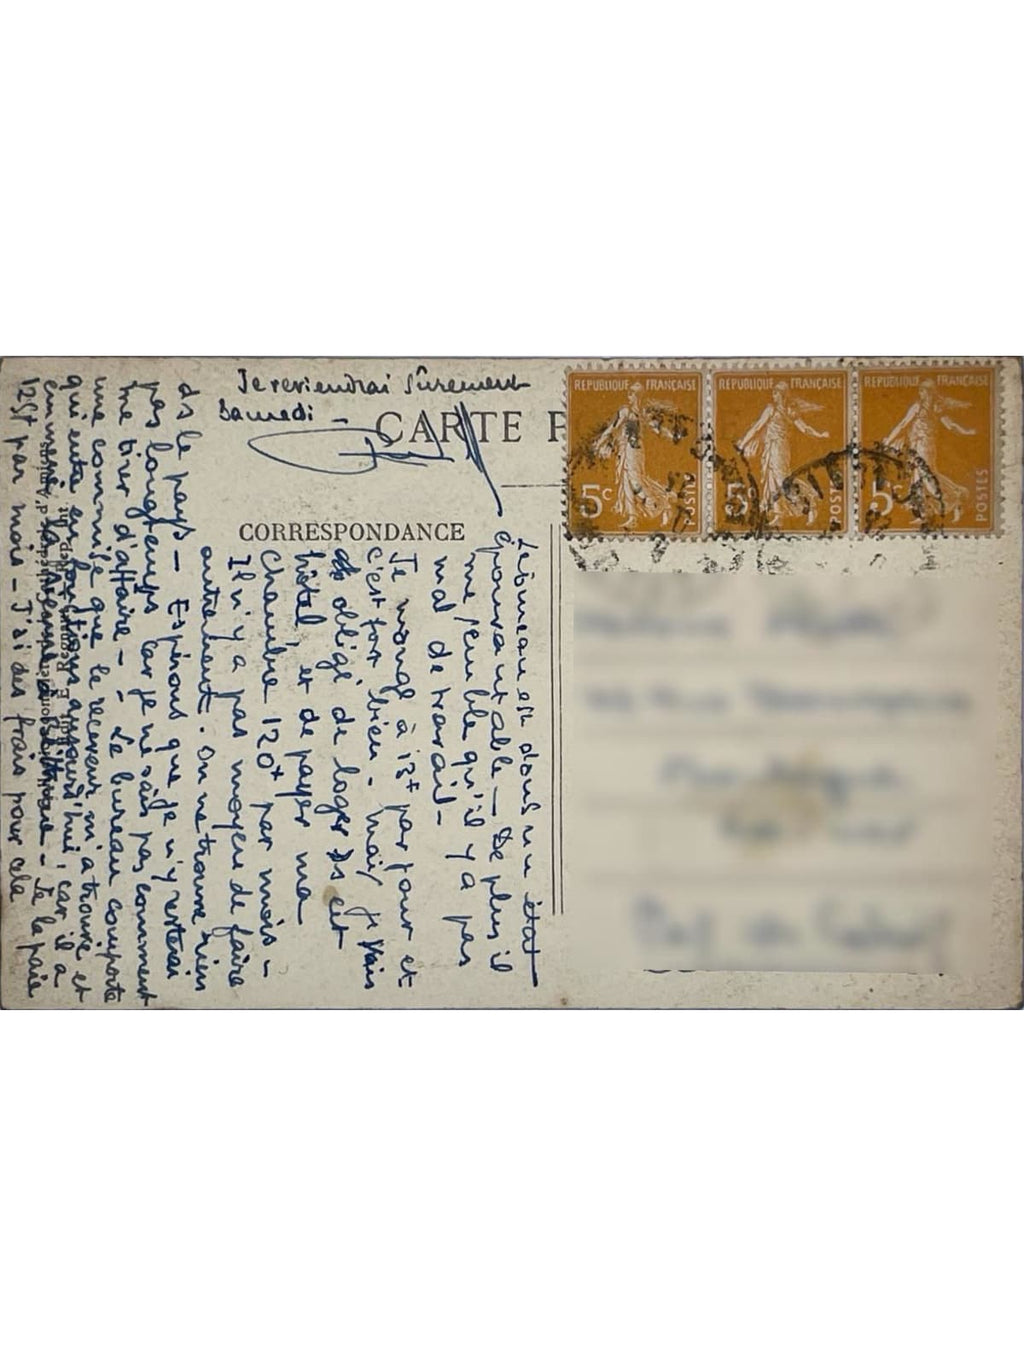 Je reviendrai sûrement
Samedi -
CARTE P
CORRESPONDANCE
REPUBLIQUE FRANÇAISE
5c
POSTES
REPUBLIQUE FRANÇAISE
5c
POSTES
REPUBLIQUE FRANÇAISE
5c
POSTES
Le bureau est dans un état
épouvantable — De plus il
me semble qu'il y a pas
mal de travail -
Je mange à 13f par jour et
c'est fort bien - mais je vais
obligé de loger ds cet
hôtel, et de payer ma
chambre 120f par mois -
Il n'y a pas moyen de faire
autrement. On ne trouve rien
ds le pays — Espérons que je n'y resterai
pas longtemps car je ne sais pas comment
me tirer d'affaire - Le bureau comporte
une commise que le receveur m'a trouvée et
qui entre en fonctions aujourd'hui, car il a
emmené la sienne à - Je la paie
125f par mois - J'ai des frais pour cela